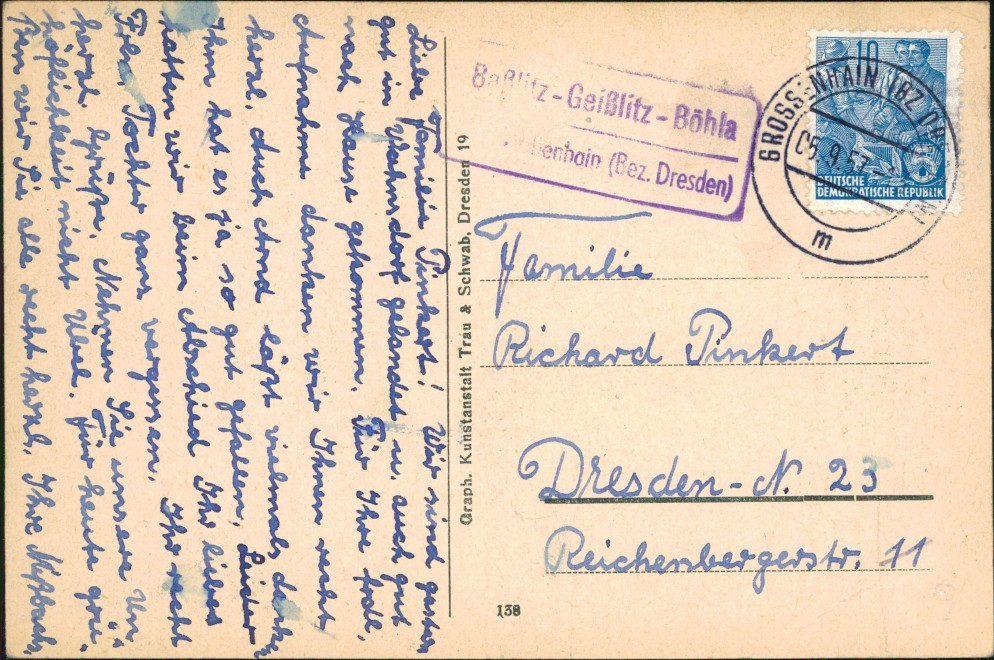 Liebe Familie Pinkert! Wir sind gestern
gut in Wahnsdorf gelandet u. auch gut
nach Haus gekommen. Für Ihre frdl.
Aufnahme danken wir Ihnen recht
herzl. Auch Arnd läßt vielmals dank.
Ihm hat es ja so gut gefallen. Leider
hatten wir beim Abschied Ihr liebes
Frln. Tochter ganz vergessen. Ihr recht
herzl. Grüße. Nehmen Sie unsere Un
höflichkeit nicht übel. Für heute grü-
ßen wir Sie alle recht herzl. Ihre Mißbachs
Graph. Kunstanstalt Trau & Schwab, Dresden 19
Baßlitz-Geißlitz-Böhla
(Bez. Dresden)
GROSSENHAIN (BZ. DRESDEN)
05.9.57
m
10
DEUTSCHE
DEMOKRATISCHE REPUBLIK
Familie
Richard Pinkert
Dresden-N. 23
Reichenbergerstr. 11
138